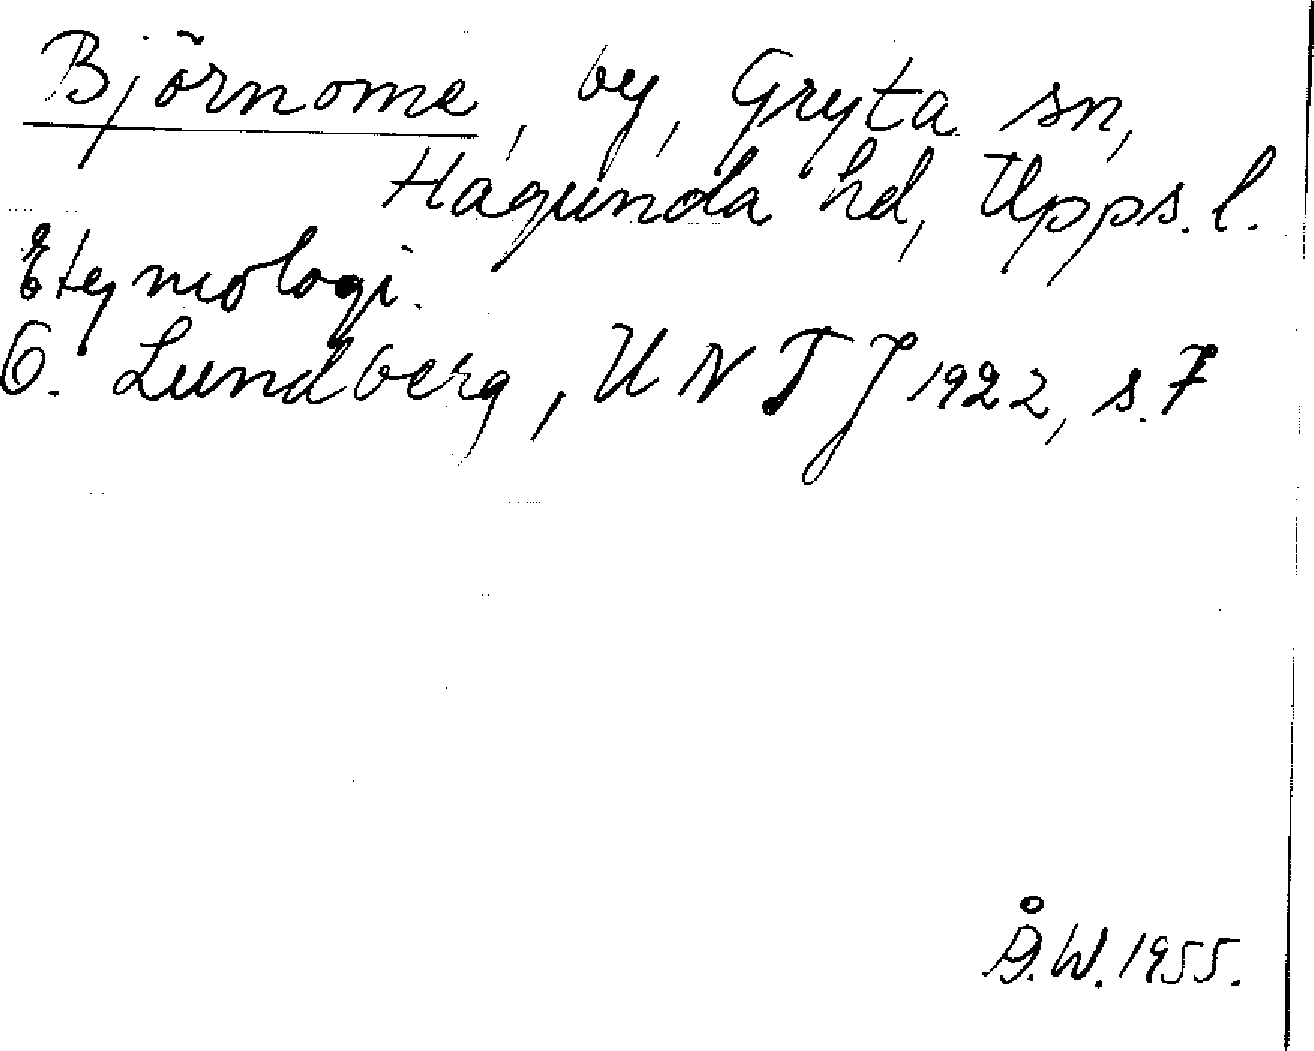 Björnome, by, Gryta sn,
Hagunda hd, Upps. l.
Etymologi.
O. Lundberg, UNTJ 1922, s. 7
Å.W. 1955.